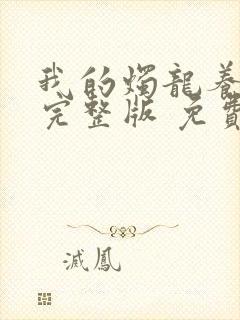 我的燭龍養
完整版 免費
滅鳳